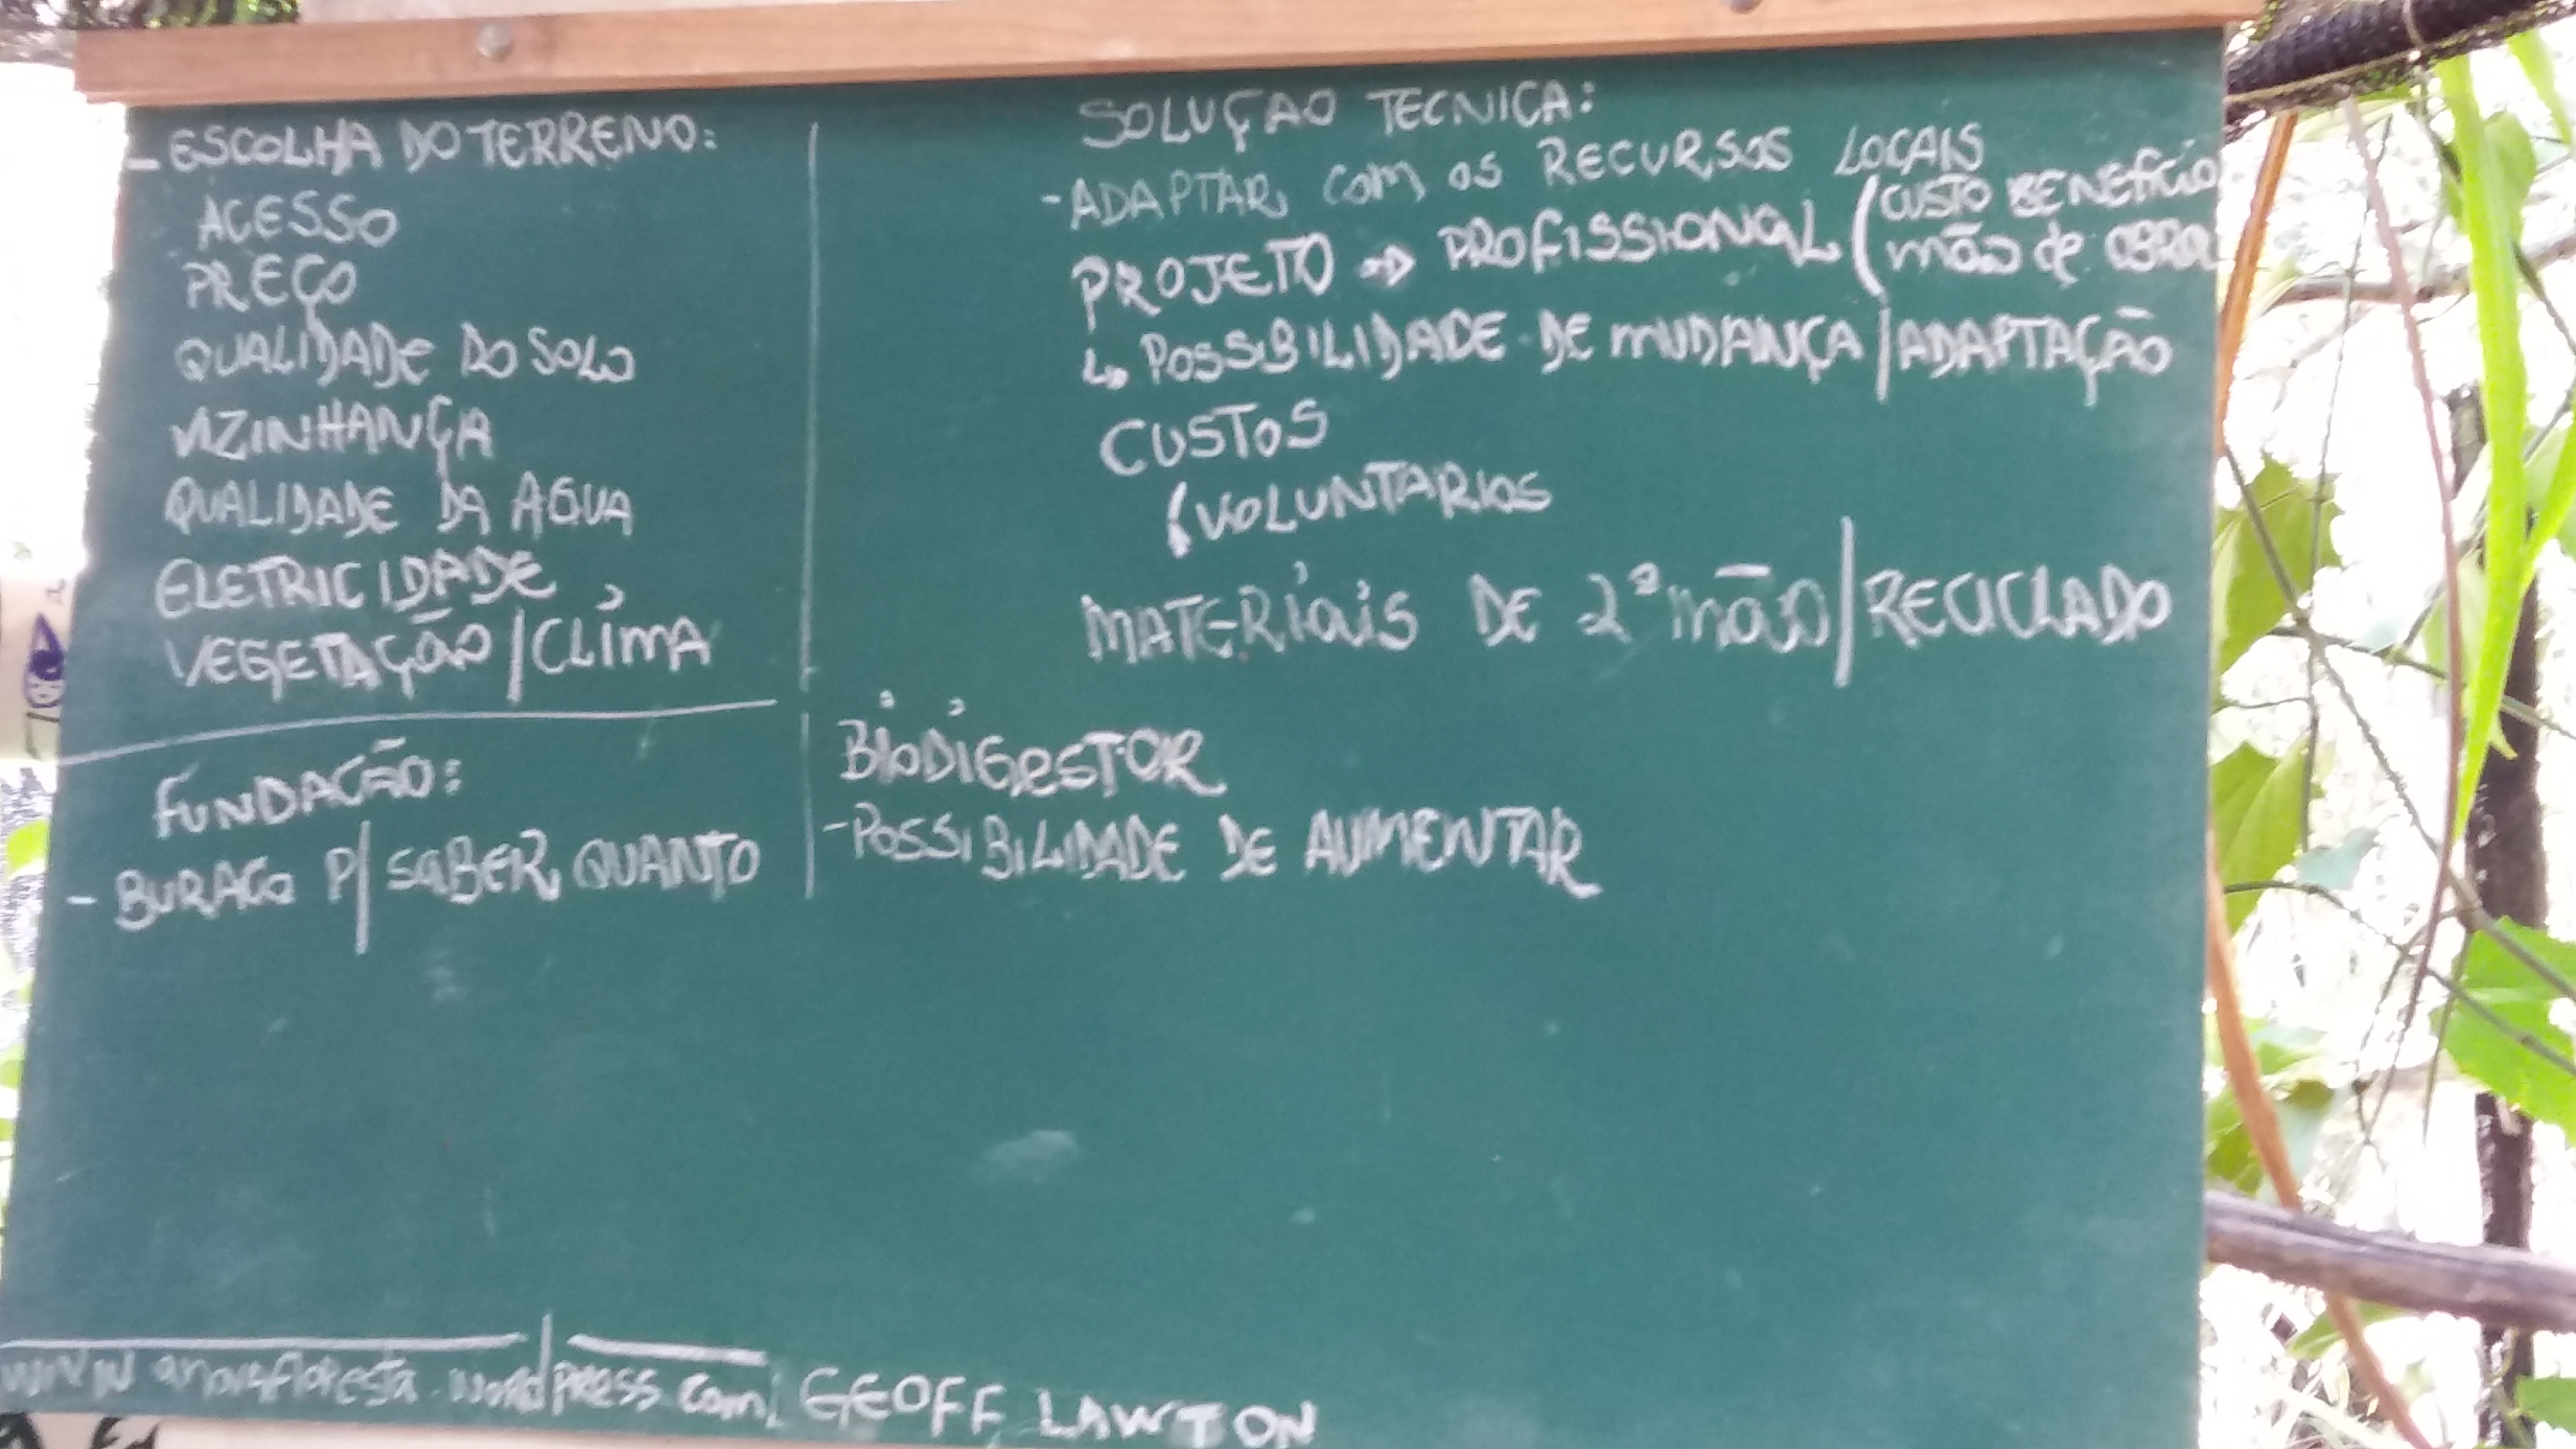 - ESCOLHA DO TERRENO:
ACESSO
PREÇO
QUALIDADE DO SOLO
VIZINHANÇA
QUALIDADE DA AGUA
ELETRICIDADE
VEGETAÇÃO/CLIMA
FUNDAÇÃO:
- BURACO P/ SABER QUANTO
SOLUÇAO TECNICA:
- ADAPTAR COM OS RECURSOS LOCAIS
PROJETO → PROFISSIONAL (CUSTO BENEFÍCIO
mão de OBRA
↳ POSSIBILIDADE DE MUDANÇA/ADAPTAÇÃO
CUSTOS
(VOLUNTARIOS
MATERIAIS DE 2ª mão/RECICLADO
BIODIGESTOR
- POSSIBILIDADE DE AUMENTAR
www anovafloresta.wordpress.com, GEOFF LAWTON